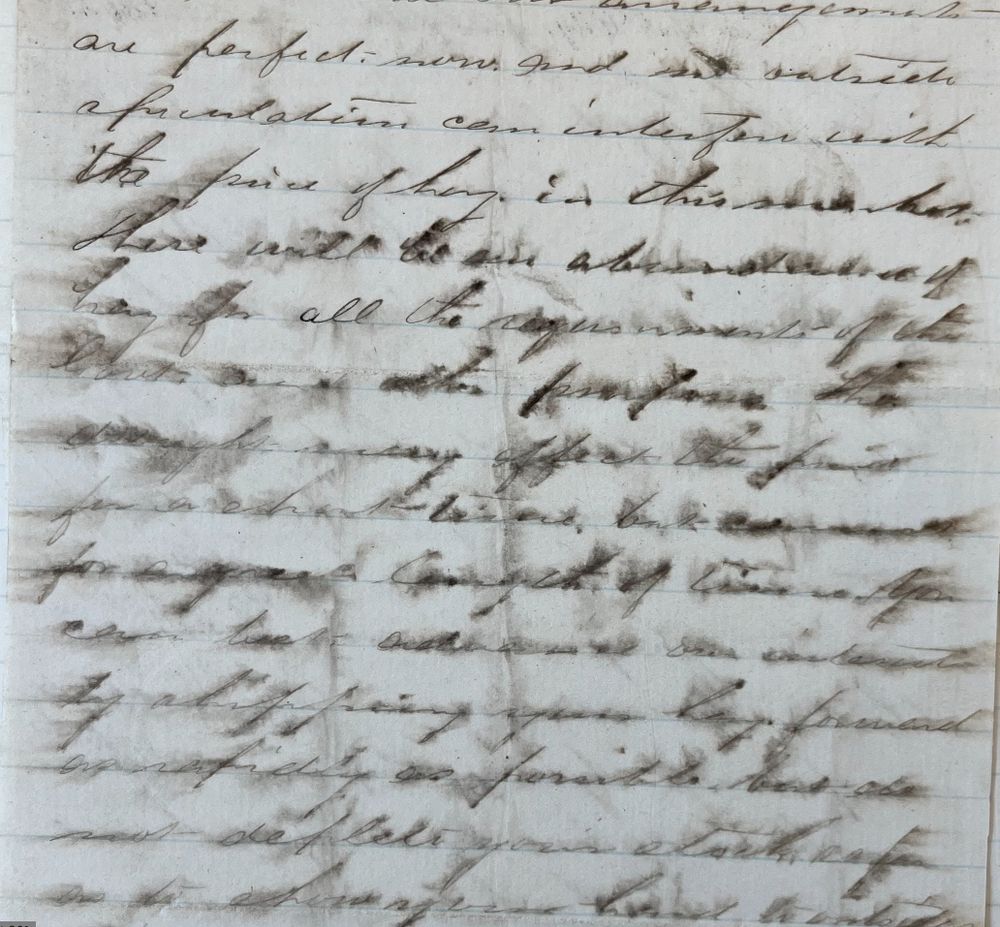 our arrangements
are perfect now. And no outside
speculation can interfere with
the price of hay in this market.
There will be an abundance of
hay for all the requirements of the
the
may affect the price
for a short time, but cannot
for a great length of time. You
can best advance our interests
by shipping your hay forward
as rapidly as possible, but do
not deplete your stock so far
as to